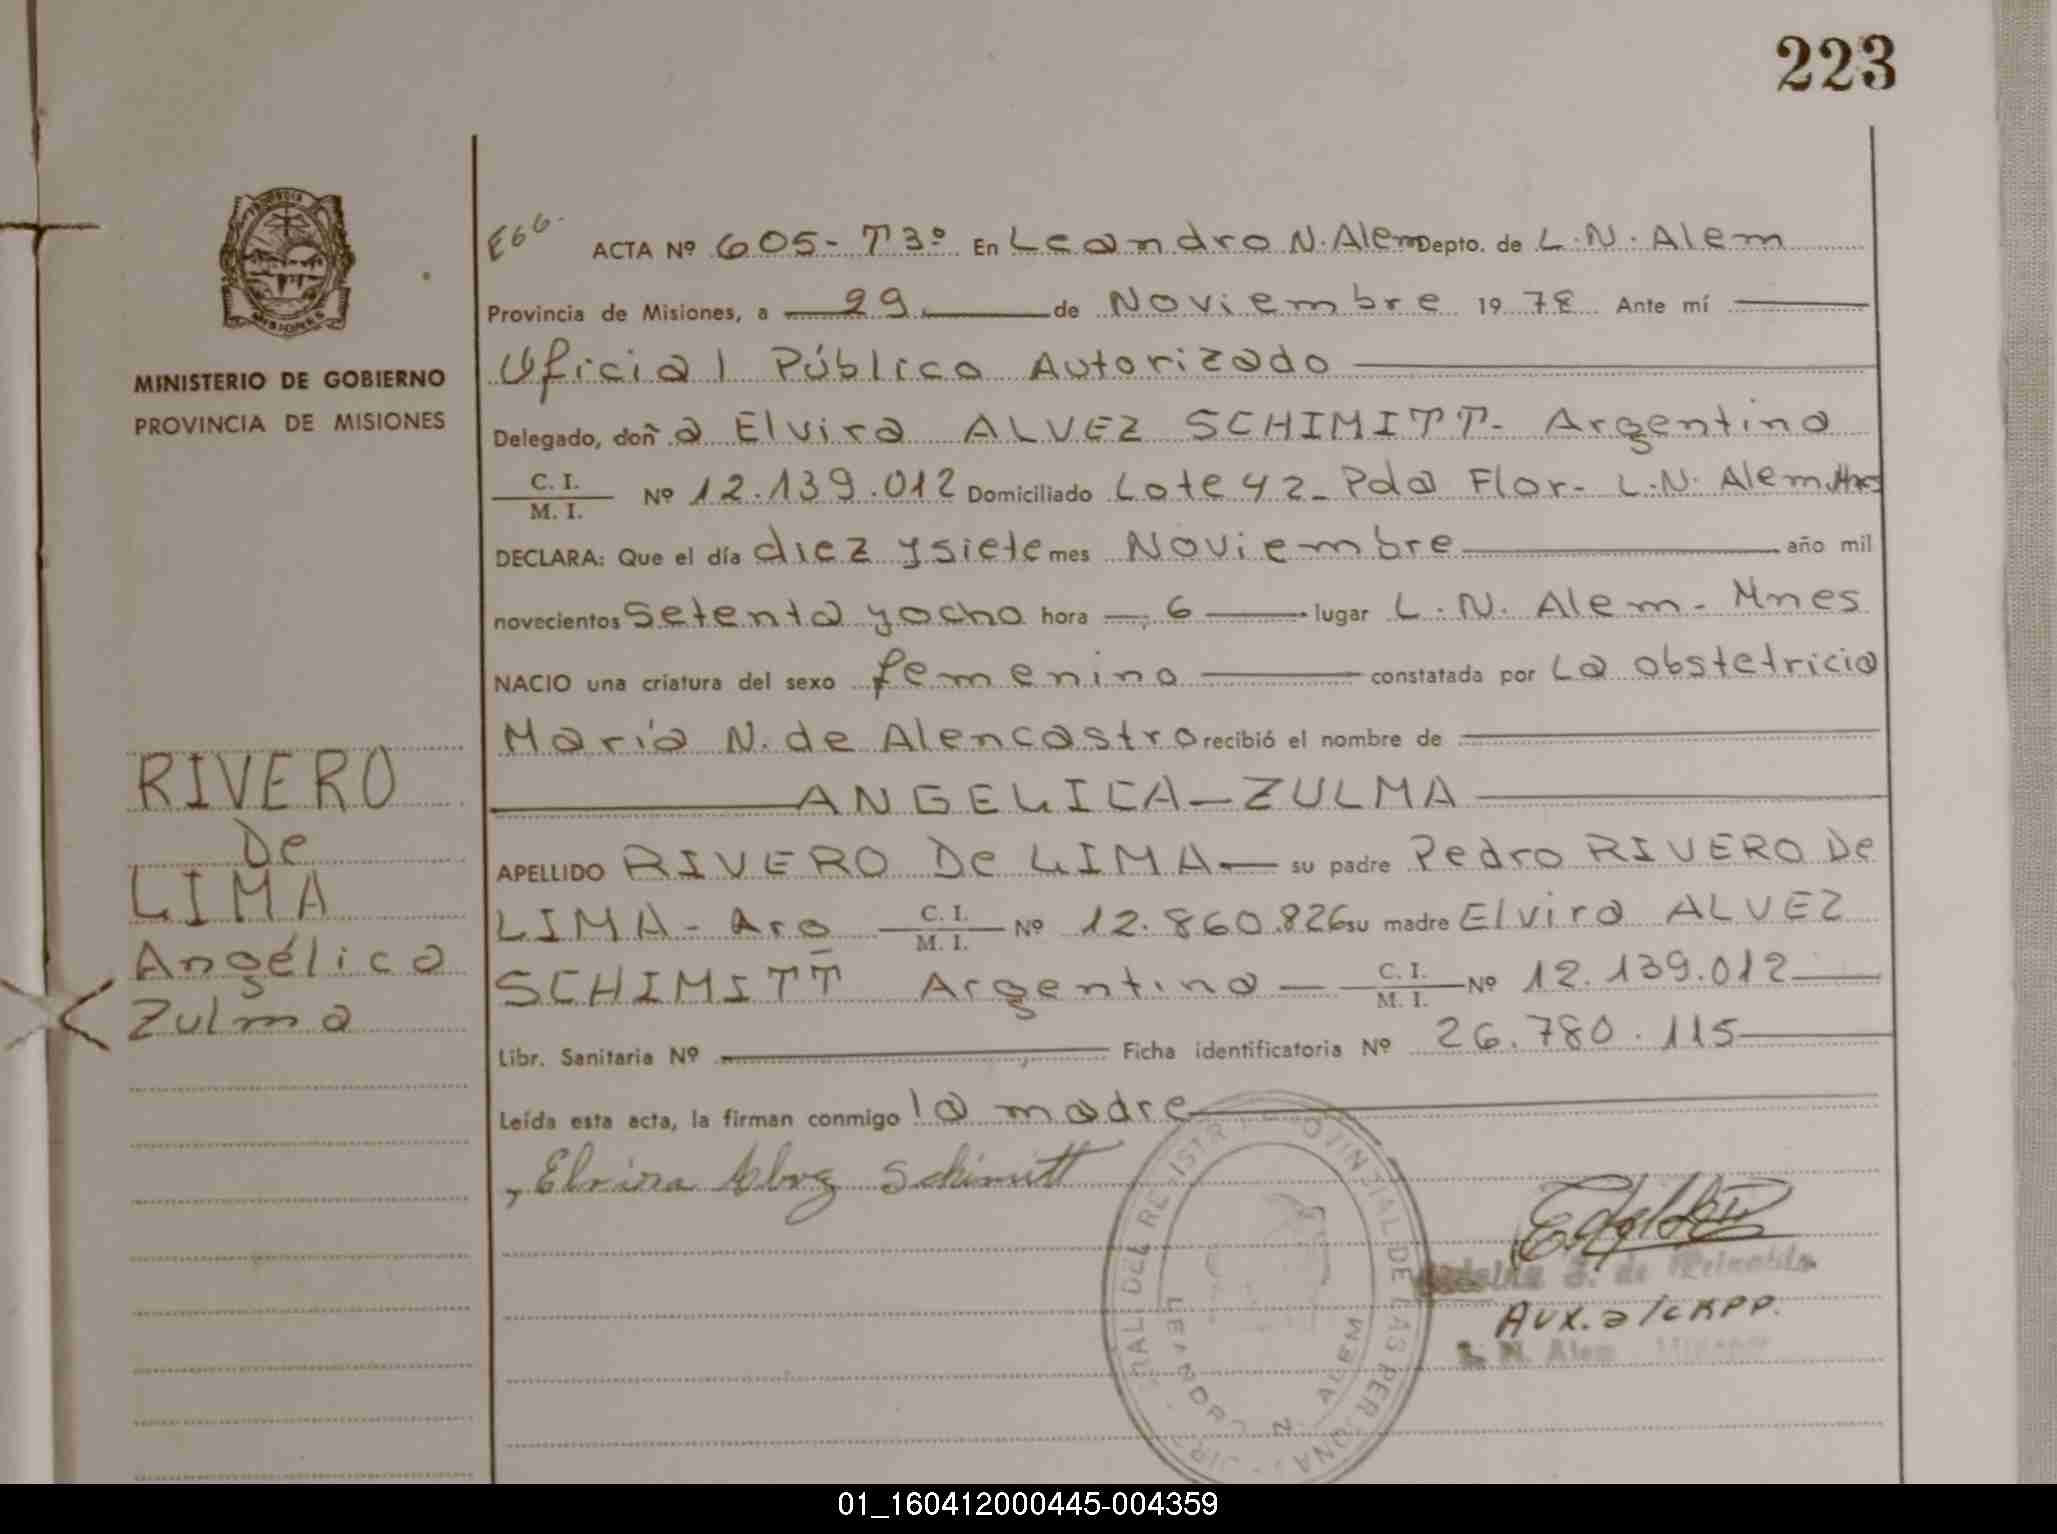 223
PROVINCIA
MISIONES
MINISTERIO DE GOBIERNO
PROVINCIA DE MISIONES
E66-
ACTA Nº 605-T3º En Leandro N. Alem Depto. de L.N. Alem
Provincia de Misiones, a 29 de Noviembre 1978 Ante mí
Oficial Público Autorizado
Delegado, doña Elvira ALVEZ SCHIMITT- Argentina
C. I.
M. I. Nº 12.139.012 Domiciliado Lote 42- Pda Flor- L.N. Alem Mnes
DECLARA: Que el día diez y siete mes Noviembre año mil
novecientos setenta y ocho hora 6 lugar L.N. Alem- Mnes
NACIO una criatura del sexo femenino constatada por La obstetricia
María N. de Alencastro recibió el nombre de
ANGELICA-ZULMA
APELLIDO RIVERO De LIMA- su padre Pedro RIVERO De
LIMA- Arg C. I. M. I. Nº 12.860.826 su madre Elvira ALVEZ
SCHIMITT Argentina - C. I. M. I. Nº 12.139.012
Libr. Sanitaria Nº Ficha identificatoria Nº 26.780.115
Leída esta acta, la firman conmigo la madre
Elvira Alvez Schimitt
Aux. a/c RPP.
L. N. Alem Misiones
RIVERO
De
LIMA
Angélica
Zulma
01_160412000445-004359